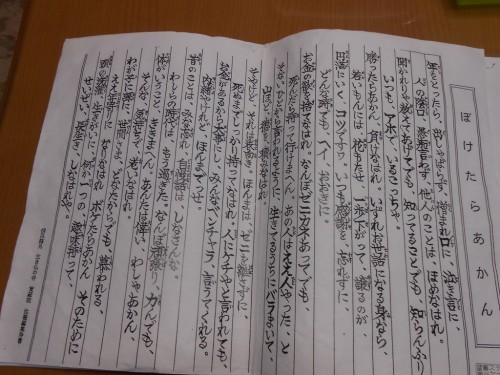 ぼけたらあかん
年をとったら、出しゃばらず、憎まれ口に、泣き言に、
人の陰口、愚痴言わず、他人のことは、ほめなはれ。
聞かれりゃ教えてあげてでも、知ってることでも、知らんふり
いつも、アホで、いるこっちゃ。
勝ったらあかん、負けなはれ、いずれお世話になる身なら、
若いもんには、花もたせ、一歩下がって、譲るのが、
円満にいく、コツですわ、いつも感謝を、忘れずに、
どんな時でも、ヘイ、おおきに。
お金の欲を、捨てなはれ、なんぼゼニカネあってでも、
死んだら持って行けまへん、あの人はええ人やった、と
そないひとから言われるように、生きてるうちにバラまいて、
山ほど徳を、積みなはれ。
そやけど、それは表向き。ほんまは、ゼニを離さずに、
死ぬまでしっかり持ってなはれ、人にケチやと言われても、
お金があるから大事にし、みんなベンチャラ、言うてくれる。
内緒やけれど、ほんまでっせ。
昔のことは、みな忘れ、自慢話は、しなさんな、
わしらの時代は、もう過ぎた、なんぼ頑張り、力んでも、
体がいうこと、ききまへん、あんたは偉い、わしゃあかん、
そんな、気持で、
わが子に孫に、世間さま、どなたからでも、慕われる、
ええ年寄りに、なりなはれ ボケたらあかん そのために
頭の洗濯、生きがいに、何か一つの 趣味持って、
せいぜい、長生き、しなはれや。